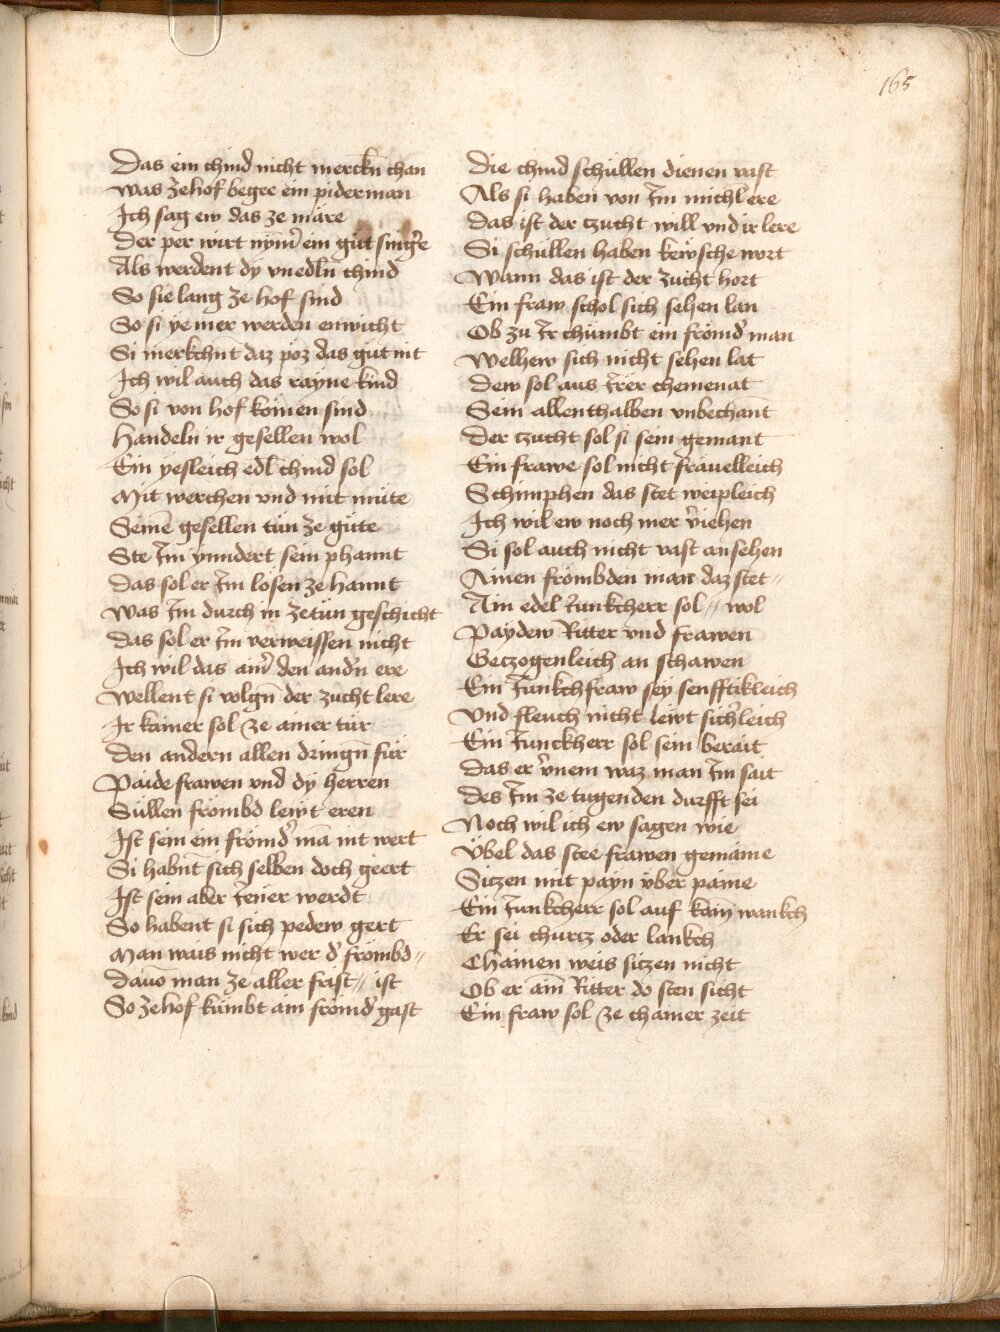 165
Das ein chind nicht merckn̄ chan
Was zehof begee ein piderman
Ich sag ew das ze märe
Der per wirt nym̄ ein gůt sing̉e
Als werdent dy vnedln chind
So sie lang ze hof sind
So si yemer werden enwicht
Si merkchnt daz pöz das gůt nit
Ich wil auch das rayne kind
So si von hof komen sind
Handeln ir gesellen wol
Ein yesleich edl chind sol
Mit werchen vnd mit můte
Seinē gesellen tůn ze gůte
Ste Im ynndert sein phannt
Das sol er Im lösen ze hannt
Was Im durch in zetůn geschicht
das sol er Im verweissen nicht
Ich wil das ain̉ den and̉n ere
Wellent si volgn̄ der zucht lere
Ir kainer sol ze ainer tür
den andern allen dringn̄ für
Paide frawen vnd dy herren
Süllen frömbd lewt eren
Ist sein ein frömd̉ mā nit wert
Si habn̄t sich selben doch geert
Ist sein aber Iener werdt
So habent si sich pedew gert
Man wais nicht wer d̉ frömbd //
dauō man ze aller frist // ist
So zehof kümbt ain frömd̉ gast
Die chind schüllen dienen vast
Als si haben von Im michl ere
Das ist der tzucht will vnd ir lere
Si schüllen haben kewsche wort
Wann das ist der zucht hort
Ein fraw schol sich sehen lan
Ob zu Ir chümbt ein frömd̉ man
Welhew sich nicht sehen lat
Dew sol aus Irer chemenat
Sein allenthalben vnbechant
Der tzucht sol si sein gemant
Ein frawe sol nicht fräuelleich
Schimphen das stet weipleich
Ich wil ew noch mer v̉iehen
Si sol auch nicht vast ansehen
Ainen frömbden man daz stet //
Ain edel Iunkcherr sol // wol
Paydew Ritter vnd frawen
Getzogenleich an schawen
Ein Iunkchfraw sey senfftikleich
Vnd fleuch nicht lewt sich̉leich
Ein Iunckherr sol sein berait
Das er v̉nem waz man Im sait
Des Im ze tugenden durfft sei
Noch wil ich ew sagen wie
Übel das stee frawen gemaine
Sitzen mit payn über paine
Ein Iunkcherr sol auf kain wankch
Er sei churtz oder lankch
Chainen weis sitzen nicht
Ob er ain̄ Ritter do sten sicht
Ein fraw sol ze chainer zeit